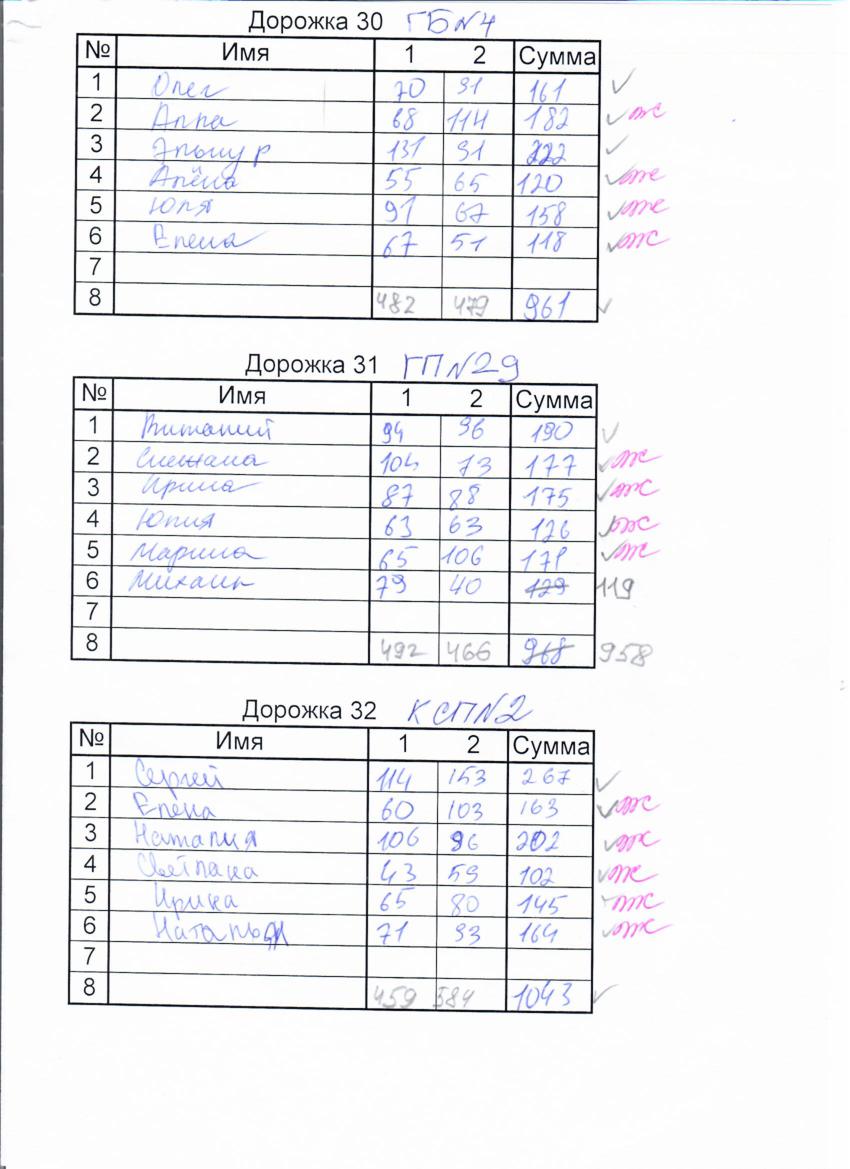 Дорожка 30 ГБN4
№ Имя 1 2 Сумма
1 Олег 70 91 161
2 Алла 68 114 182 ж
3 131 91 222
4 Алёна 55 65 120 ж
5 Юля 91 67 158 ж
6 Елена 67 51 118 ж
7
8 482 479 961
Дорожка 31 ГПN29
№ Имя 1 2 Сумма
1 Виталий 94 96 190
2 Снежана 104 73 177 ж
3 Ирина 87 88 175 ж
4 Юлия 63 63 126 ж
5 Марина 65 106 171 ж
6 Михаил 79 40 129 119
7
8 492 466 968 958
Дорожка 32 КСПN2
№ Имя 1 2 Сумма
1 Сергей 114 153 267
2 Елена 60 103 163 ж
3 Наталия 106 96 202 ж
4 Светлана 43 59 102 ж
5 Ирина 65 80 145 ж
6 Наталья 71 93 164 ж
7
8 459 584 1043